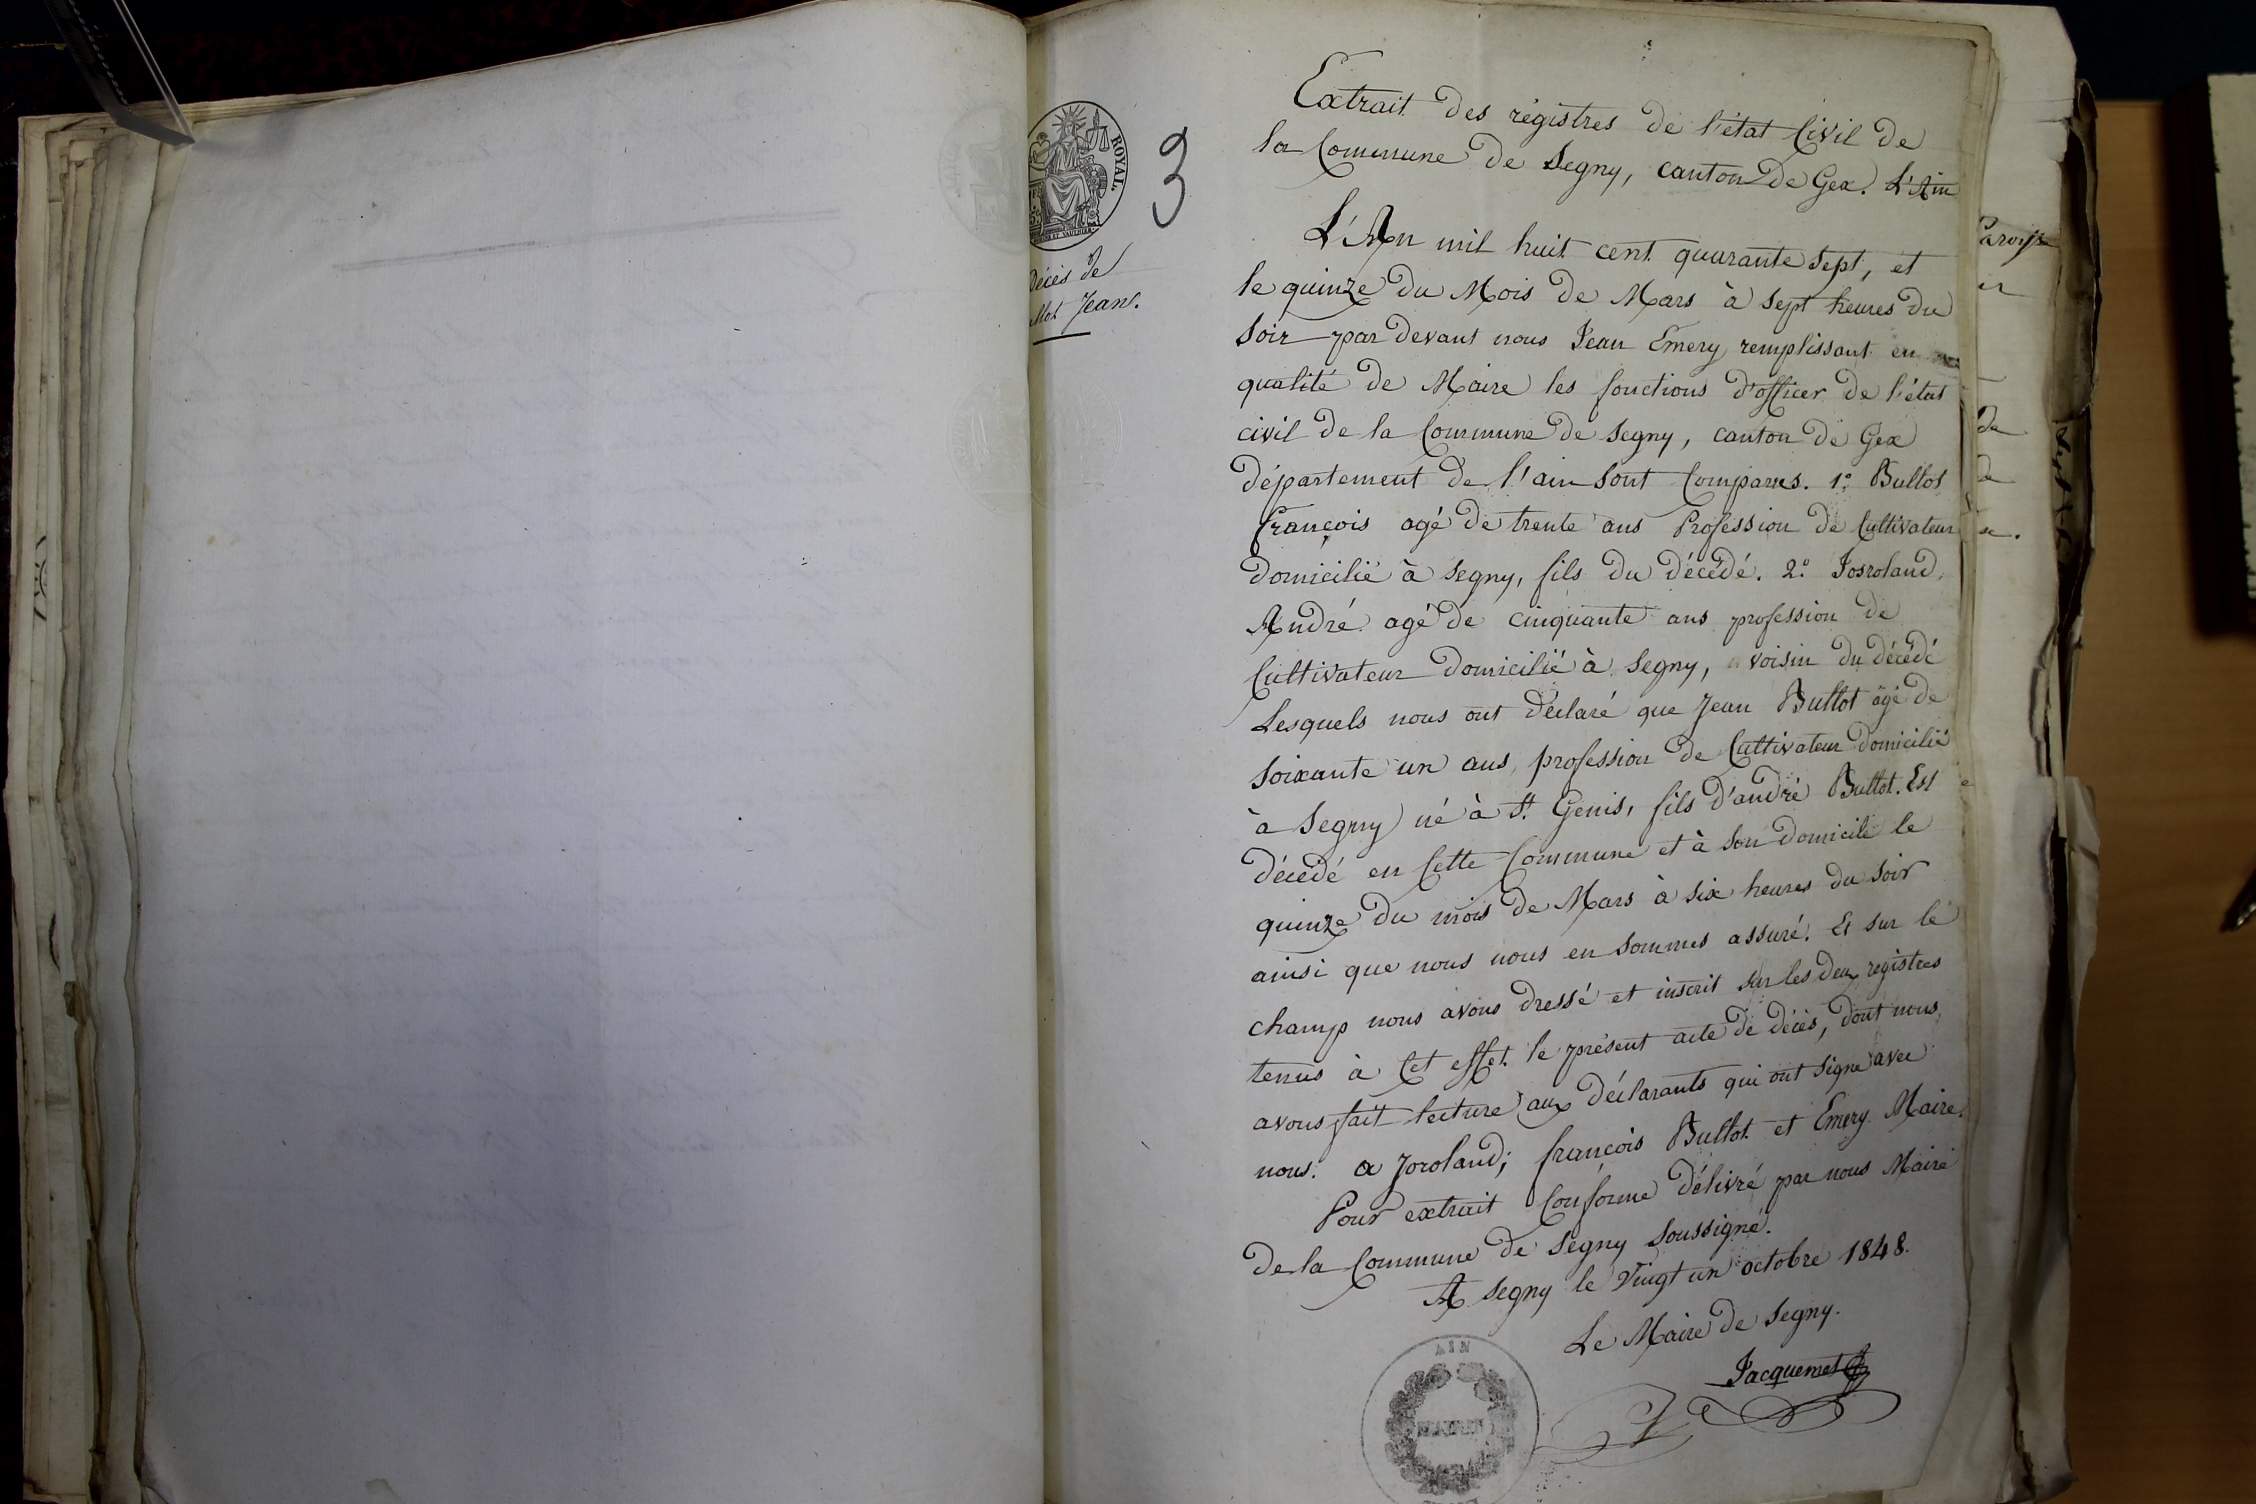 ROYAL.
3
Décès de
llot Jean.
Extrait des régistres de l'état Civil de
la Commune de Segny, canton de Gex. L'Ain
L'An mil huit cent quarante sept, et
le quinze du Mois de Mars à sept heures du
soir par devant nous Jean Emery remplissant en
qualité de Maire les fonctions d'officer de l'état
civil de la Commune de Segny, canton de Gex
département de l'ain sont Comparus. 1º Bullot
françois agé de trente ans Profession de Cultivateur
domicilié à Segny, fils du décédé. 2º Josroland
André agé de cinquante ans profession de
Cultivateur domicilié à Segny, voisin du décédé
Lesquels nous ont déclaré que Jean Bullot âgé de
soixante un ans, profession de Cultivateur domicilié
à Segny né à St. Genis, fils d'andré Bullot. Est
décédé en Cette Commune et à son domicile le
quinze du mois de Mars à six heures du soir
ainsi que nous nous en sommes assuré. Et sur le
champ nous avons dressé et inscrit sur les deux registres
tenus à Cet effet le présent acte de décès, dont nous
avons fait lecture aux déclarants qui ont signé avec
nous. a Joroland; françois Bullot et Emery Maire.
Pour extrait Conforme délivré par nous Maire
de la Commune de Segny soussigné.
A Segny le Vingt un octobre 1848.
Le Maire de Segny.
Jacquemet
AIN
MAIRIE
de
de